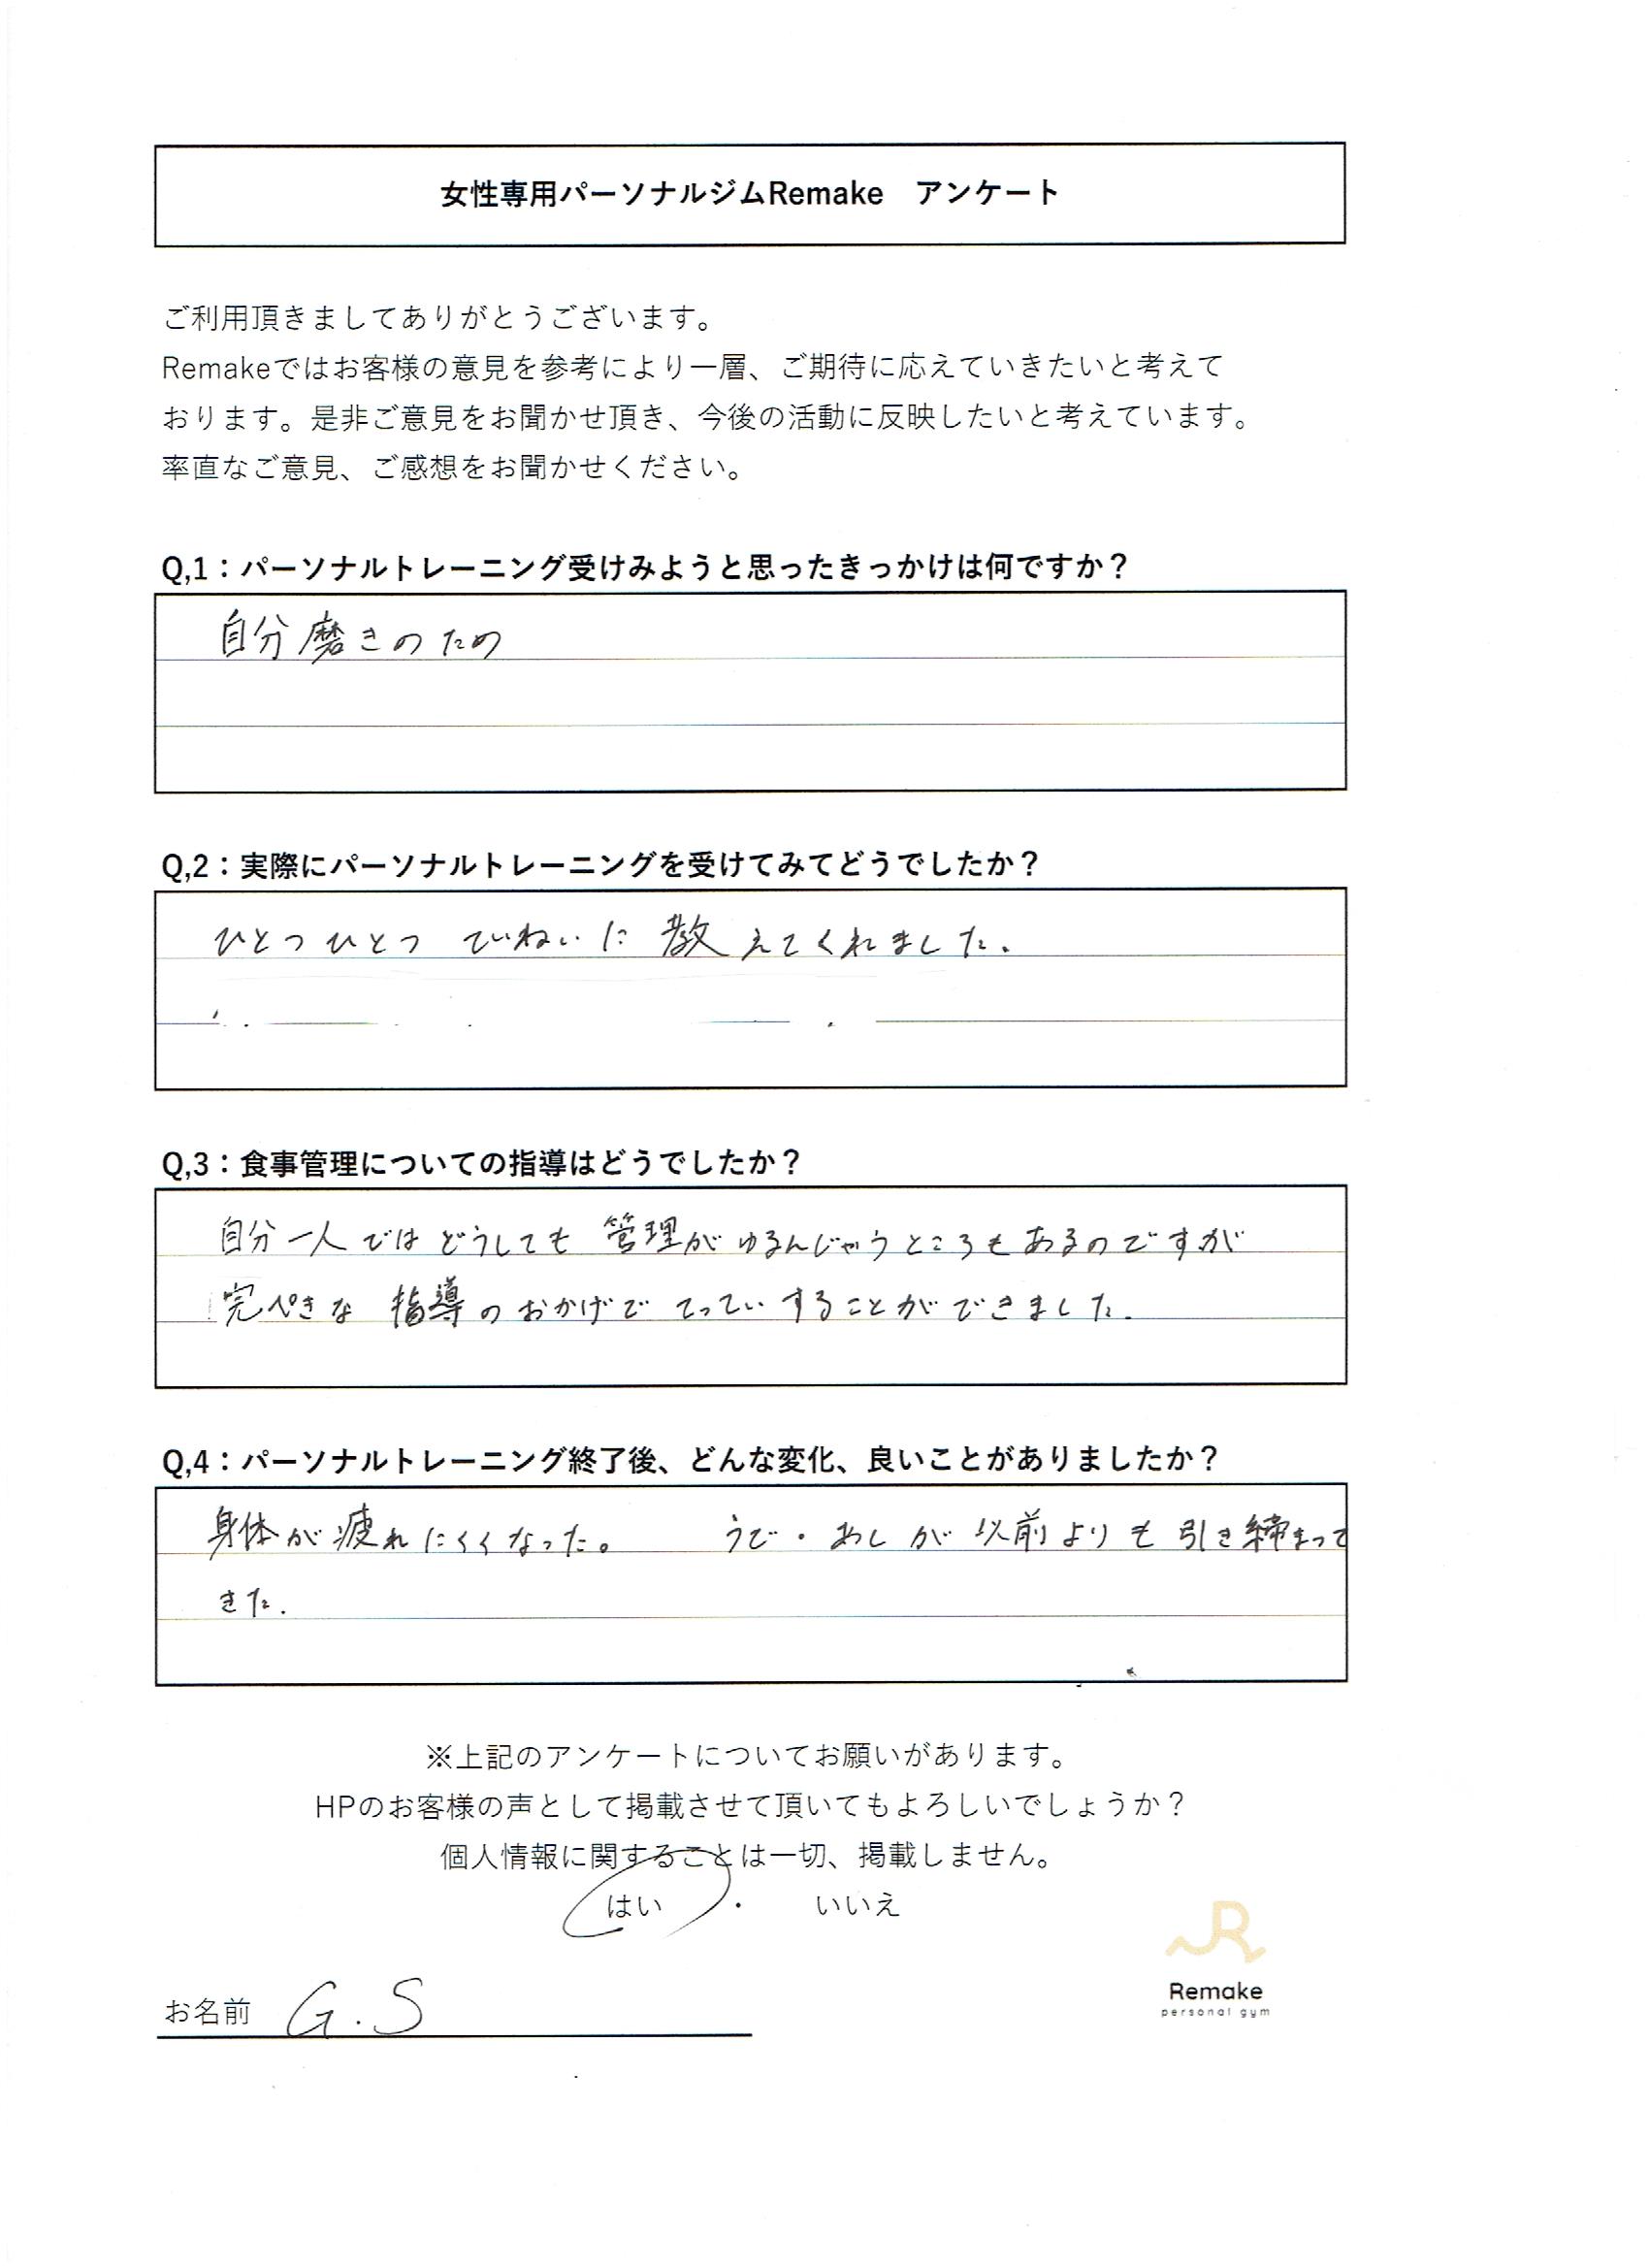 女性専用パーソナルジムRemake　アンケート
ご利用頂きましてありがとうございます。
Remakeではお客様の意見を参考により一層、ご期待に応えていきたいと考えて
おります。是非ご意見をお聞かせ頂き、今後の活動に反映したいと考えています。
率直なご意見、ご感想をお聞かせください。
Q,1：パーソナルトレーニング受けみようと思ったきっかけは何ですか？
自分磨きのため
Q,2：実際にパーソナルトレーニングを受けてみてどうでしたか？
ひとつひとつ ていねいに 教えてくれました.
Q,3：食事管理についての指導はどうでしたか？
自分一人ではどうしても 管理がゆるんじゃうところもあるのですが
完ぺきな 指導のおかげで てっていすることができました.
Q,4：パーソナルトレーニング終了後、どんな変化、良いことがありましたか？
身体が疲れにくくなった。 うで・あしが以前よりも引き締まって
きた.
※上記のアンケートについてお願いがあります。
HPのお客様の声として掲載させて頂いてもよろしいでしょうか？
個人情報に関することは一切、掲載しません。
はい ・ いいえ
お名前 G.S
Remake
personal gym